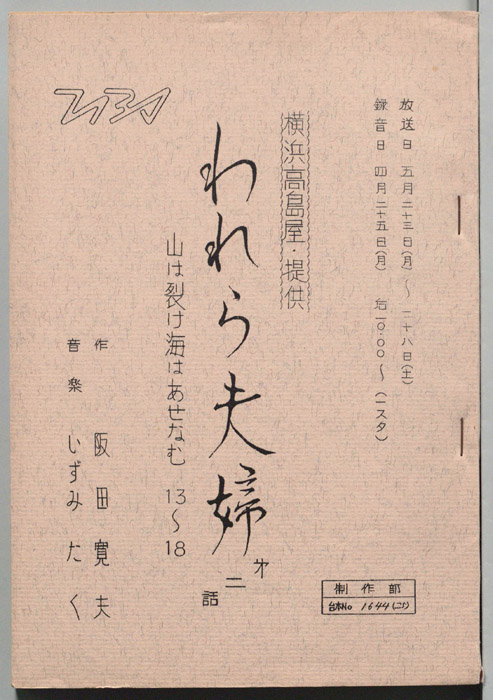 放送日 五月二十三日(月)〜二十八日(土)
録音日 四月二十五日(月) 后一〇.〇〇〜(一スタ)
横浜高島屋・提供
われら夫婦 第二話
山は裂け海はあせなむ 13〜18
作 阪田寛夫
音楽 いずみたく
制作部
台本No 1644